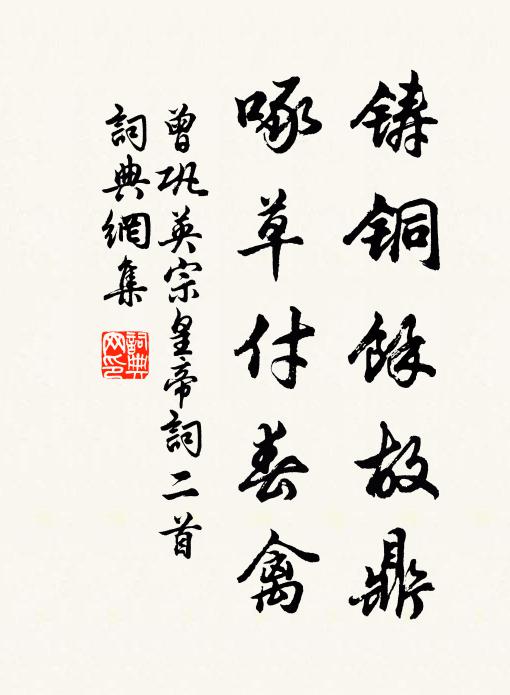 铸铜余故鼎
啄草付春禽
曾巩英宗皇帝詞二首
詞典網集
詞典网印